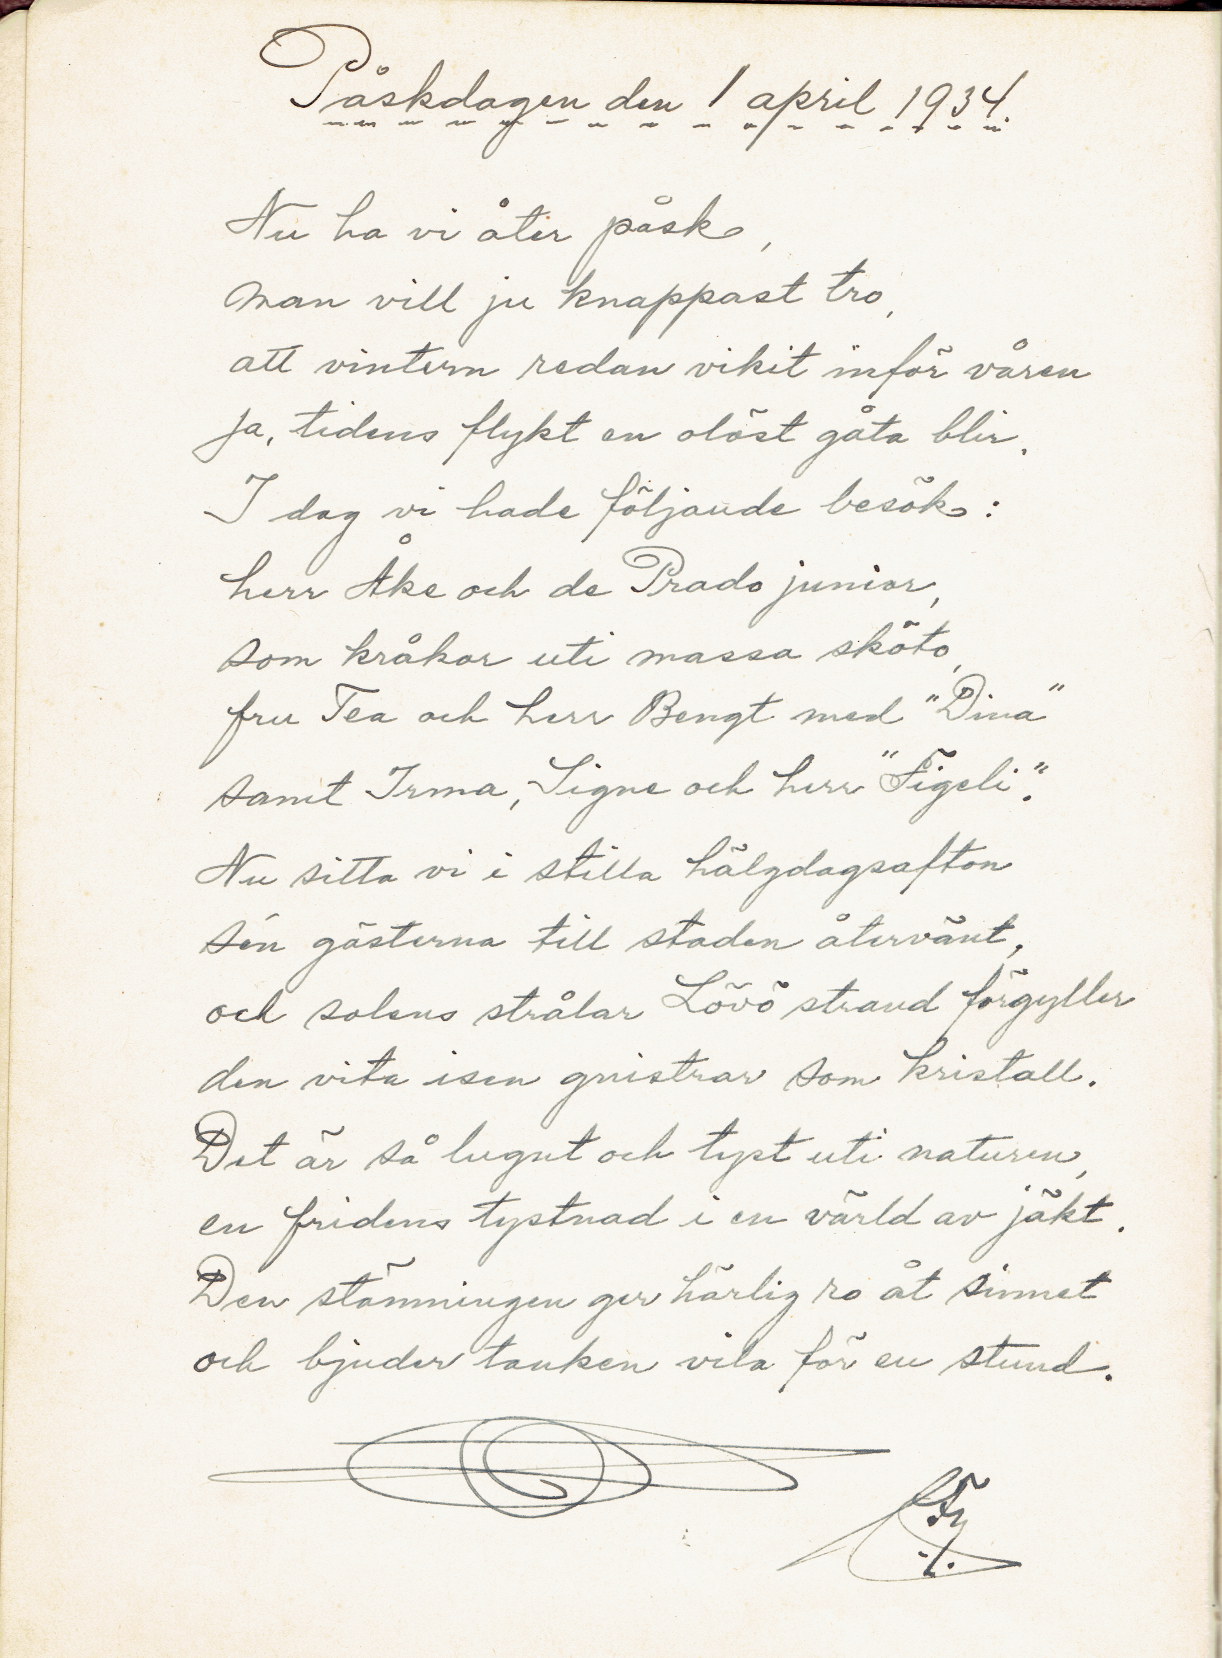 Påskdagen den 1 april 1934.
Nu ha vi åter påsk,
man vill ju knappast tro,
att vintern redan vikit inför våren
ja, tidens flykt en olöst gåta blir.
I dag vi hade följande besök:
herr Åke och de Prado junior,
som kråkor uti massa sköto,
fru Tea och herr Bengt med "Dina"
samt Irma, Signe och herr "Figeli".
Nu sitta vi i stilla hälgdagsafton
sén gästerna till staden återvänt,
och solens strålar Lövö strand förgyller
den vita isen gnistrar som kristall.
Det är så lugnt och tyst uti naturen,
en fridens tystnad i en värld av jäkt.
Den stämningen ger härlig ro åt sinnet
och bjuder tanken vila för en stund.